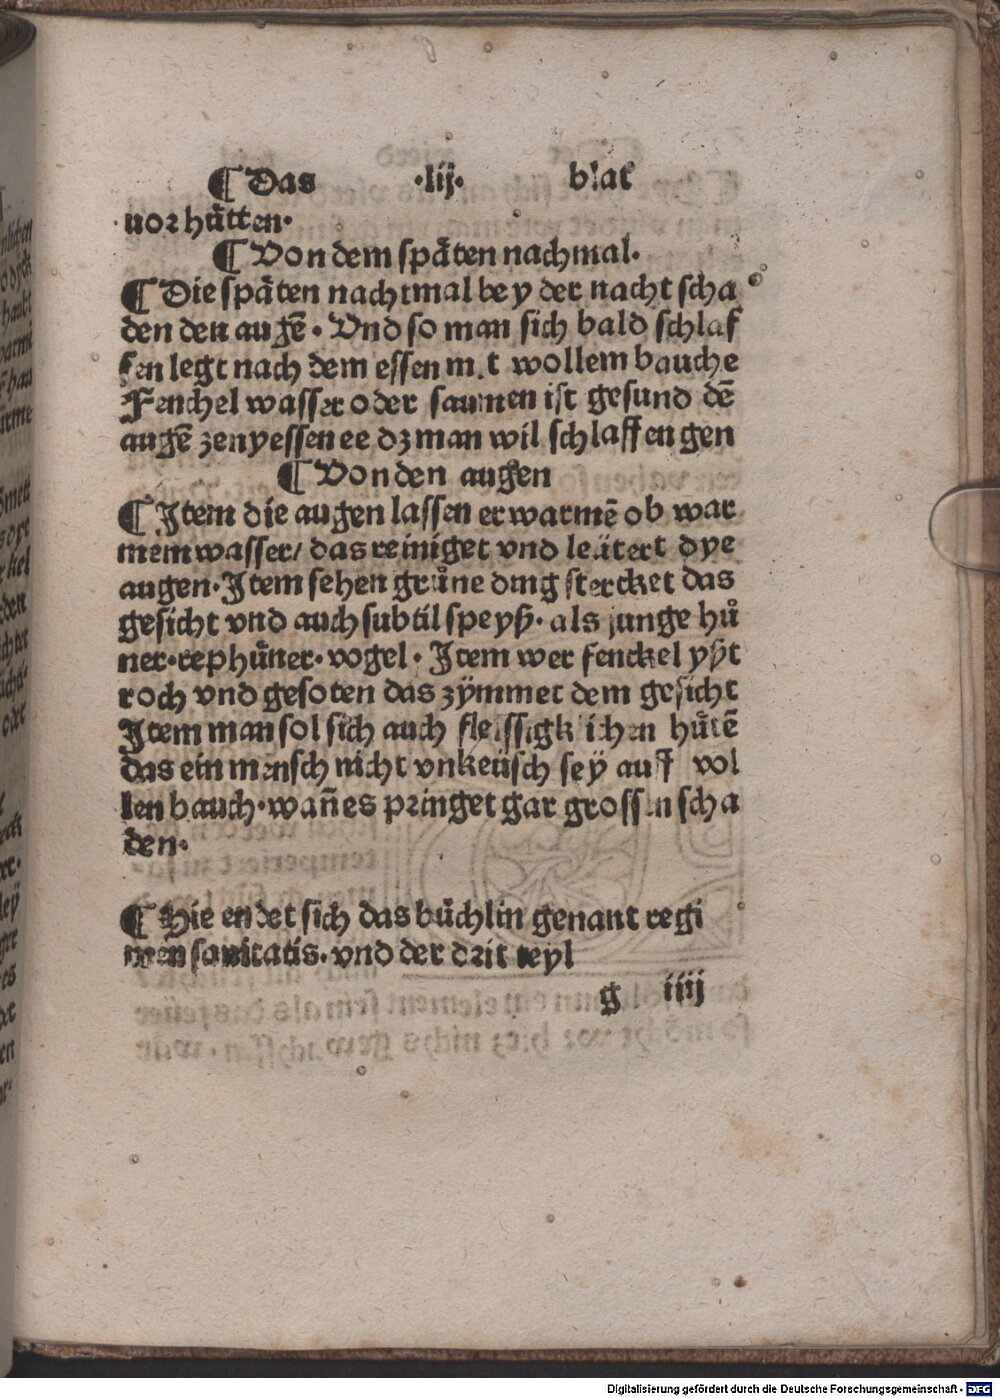 ¶ Das ·lij· blat
vor hütten·
¶ Von dem späten nachmal.
¶ Die späten nachtmal bey der nacht scha
den den augē· Vnd so man sich bald schlaf
fen legt nach dem essen mit wollem bauche
Fenchel wasser oder saumen ist gesund dē
augē zenyessen ee dz man wil schlaffen gen
¶ Von den augen
¶ Item die augen lassen erwarmē ob war
mem wasser/ das reiniget vnd leütert dye
augen· Item sehen grůne ding stercket das
gesicht vnd auch subtil speyß· als junge hů
ner· rephůner· vogel· Item wer fenckel yßt
roch vnd gesoten das zymmet dem gesicht
Item man sol sich auch fleissigklichen hůtē
das ein mensch nicht vnkeüsch sey auff vol
len bauch· wañ es pringet gar grossen scha
den·
¶ Hie endet sich das büchlin genant regi
men sanitatis· vnd der drit teyl
g iiij
Digitalisierung gefördert durch die Deutsche Forschungsgemeinschaft - DFG